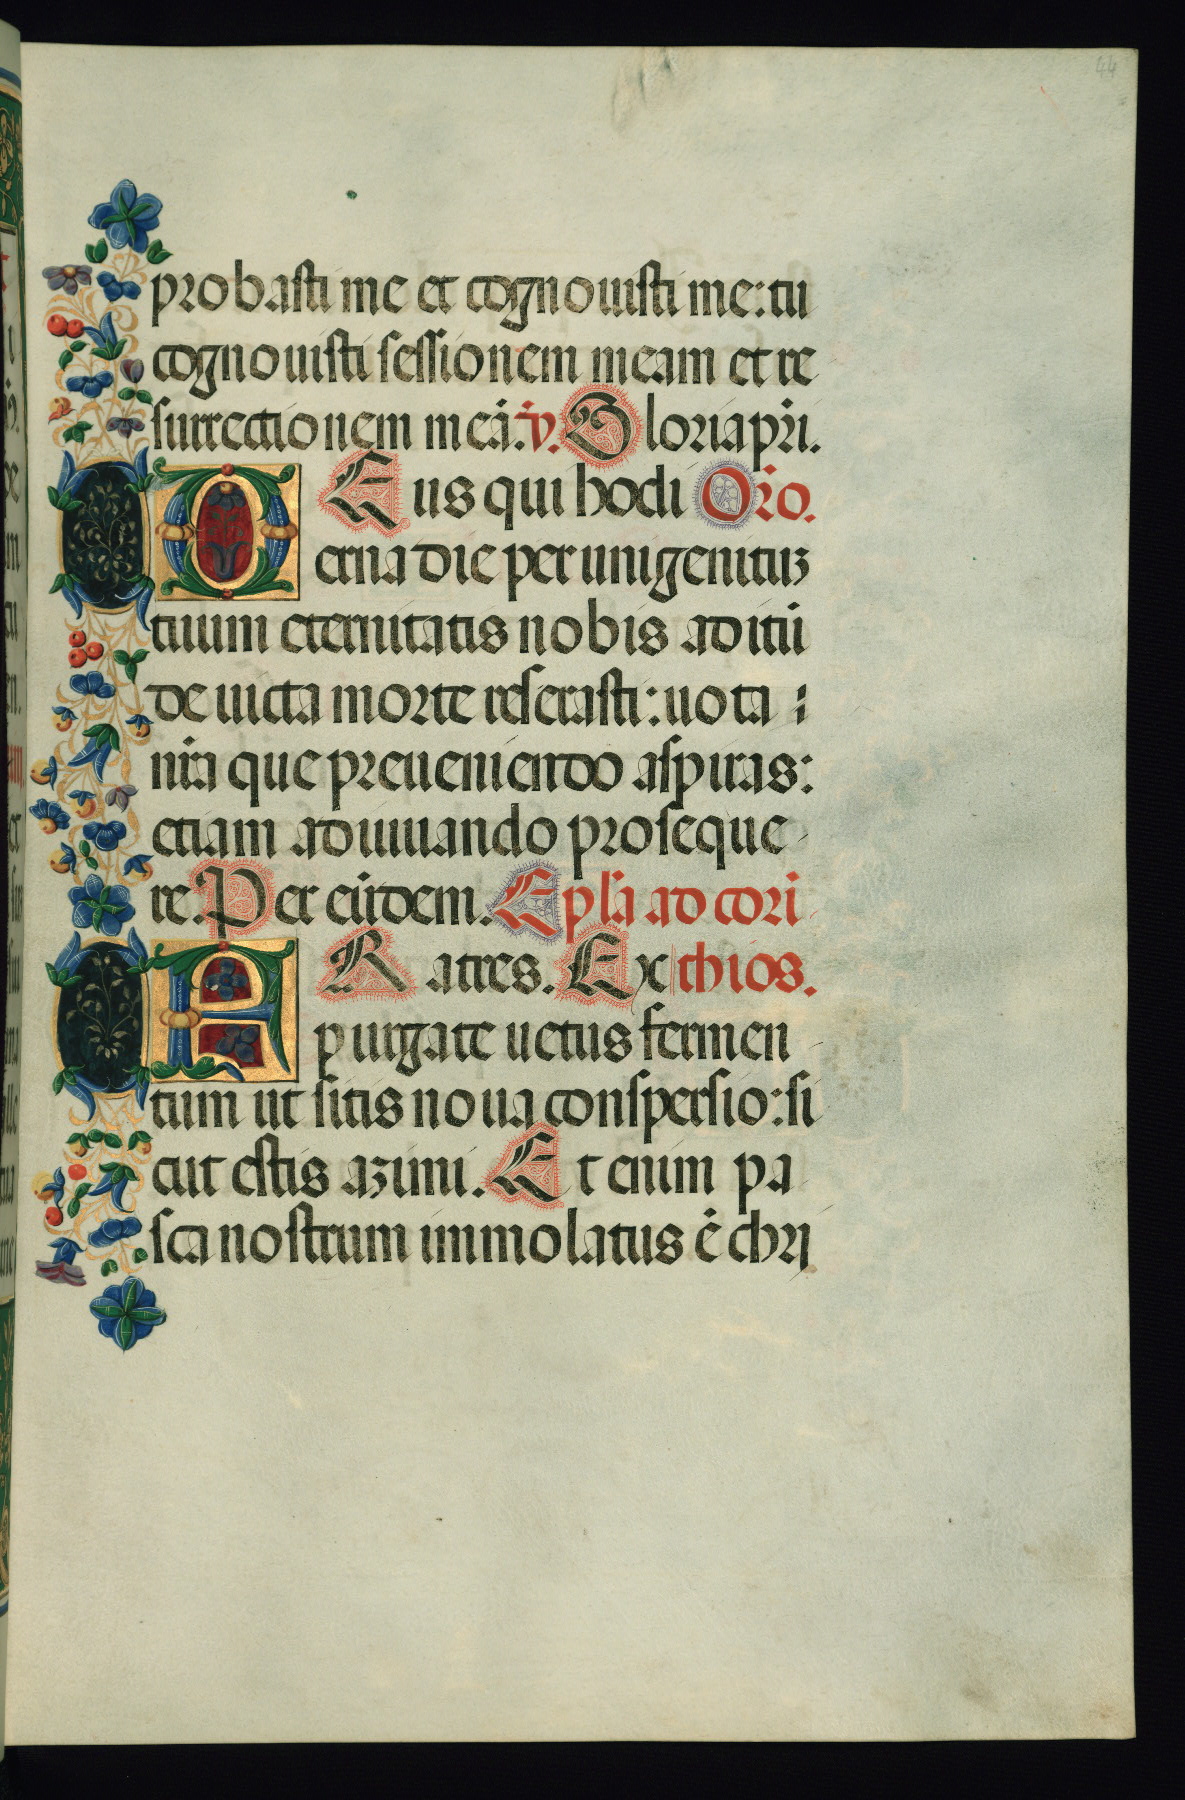 44
probasti me et cognouisti me: tu
cognouisti sessionem meam et re
surrectionem meā. V̄. Gloria pr̄i.
DEus qui hodi Orō.
erna die per unigenitūꝫ
tuum eternitatis nobis aditū
deuicta morte reserasti: uota
nr̄a que preueniendo aspiras:
etiam adiuuando proseque
re. Per eūdem. Epl̄a ad cori
FRatres. Ex thios.
purgate uetus fermen
tum ut sitis noua conspersio: si
cut estis azimi. Et enim pa
sca nostrum immolatus ē chri